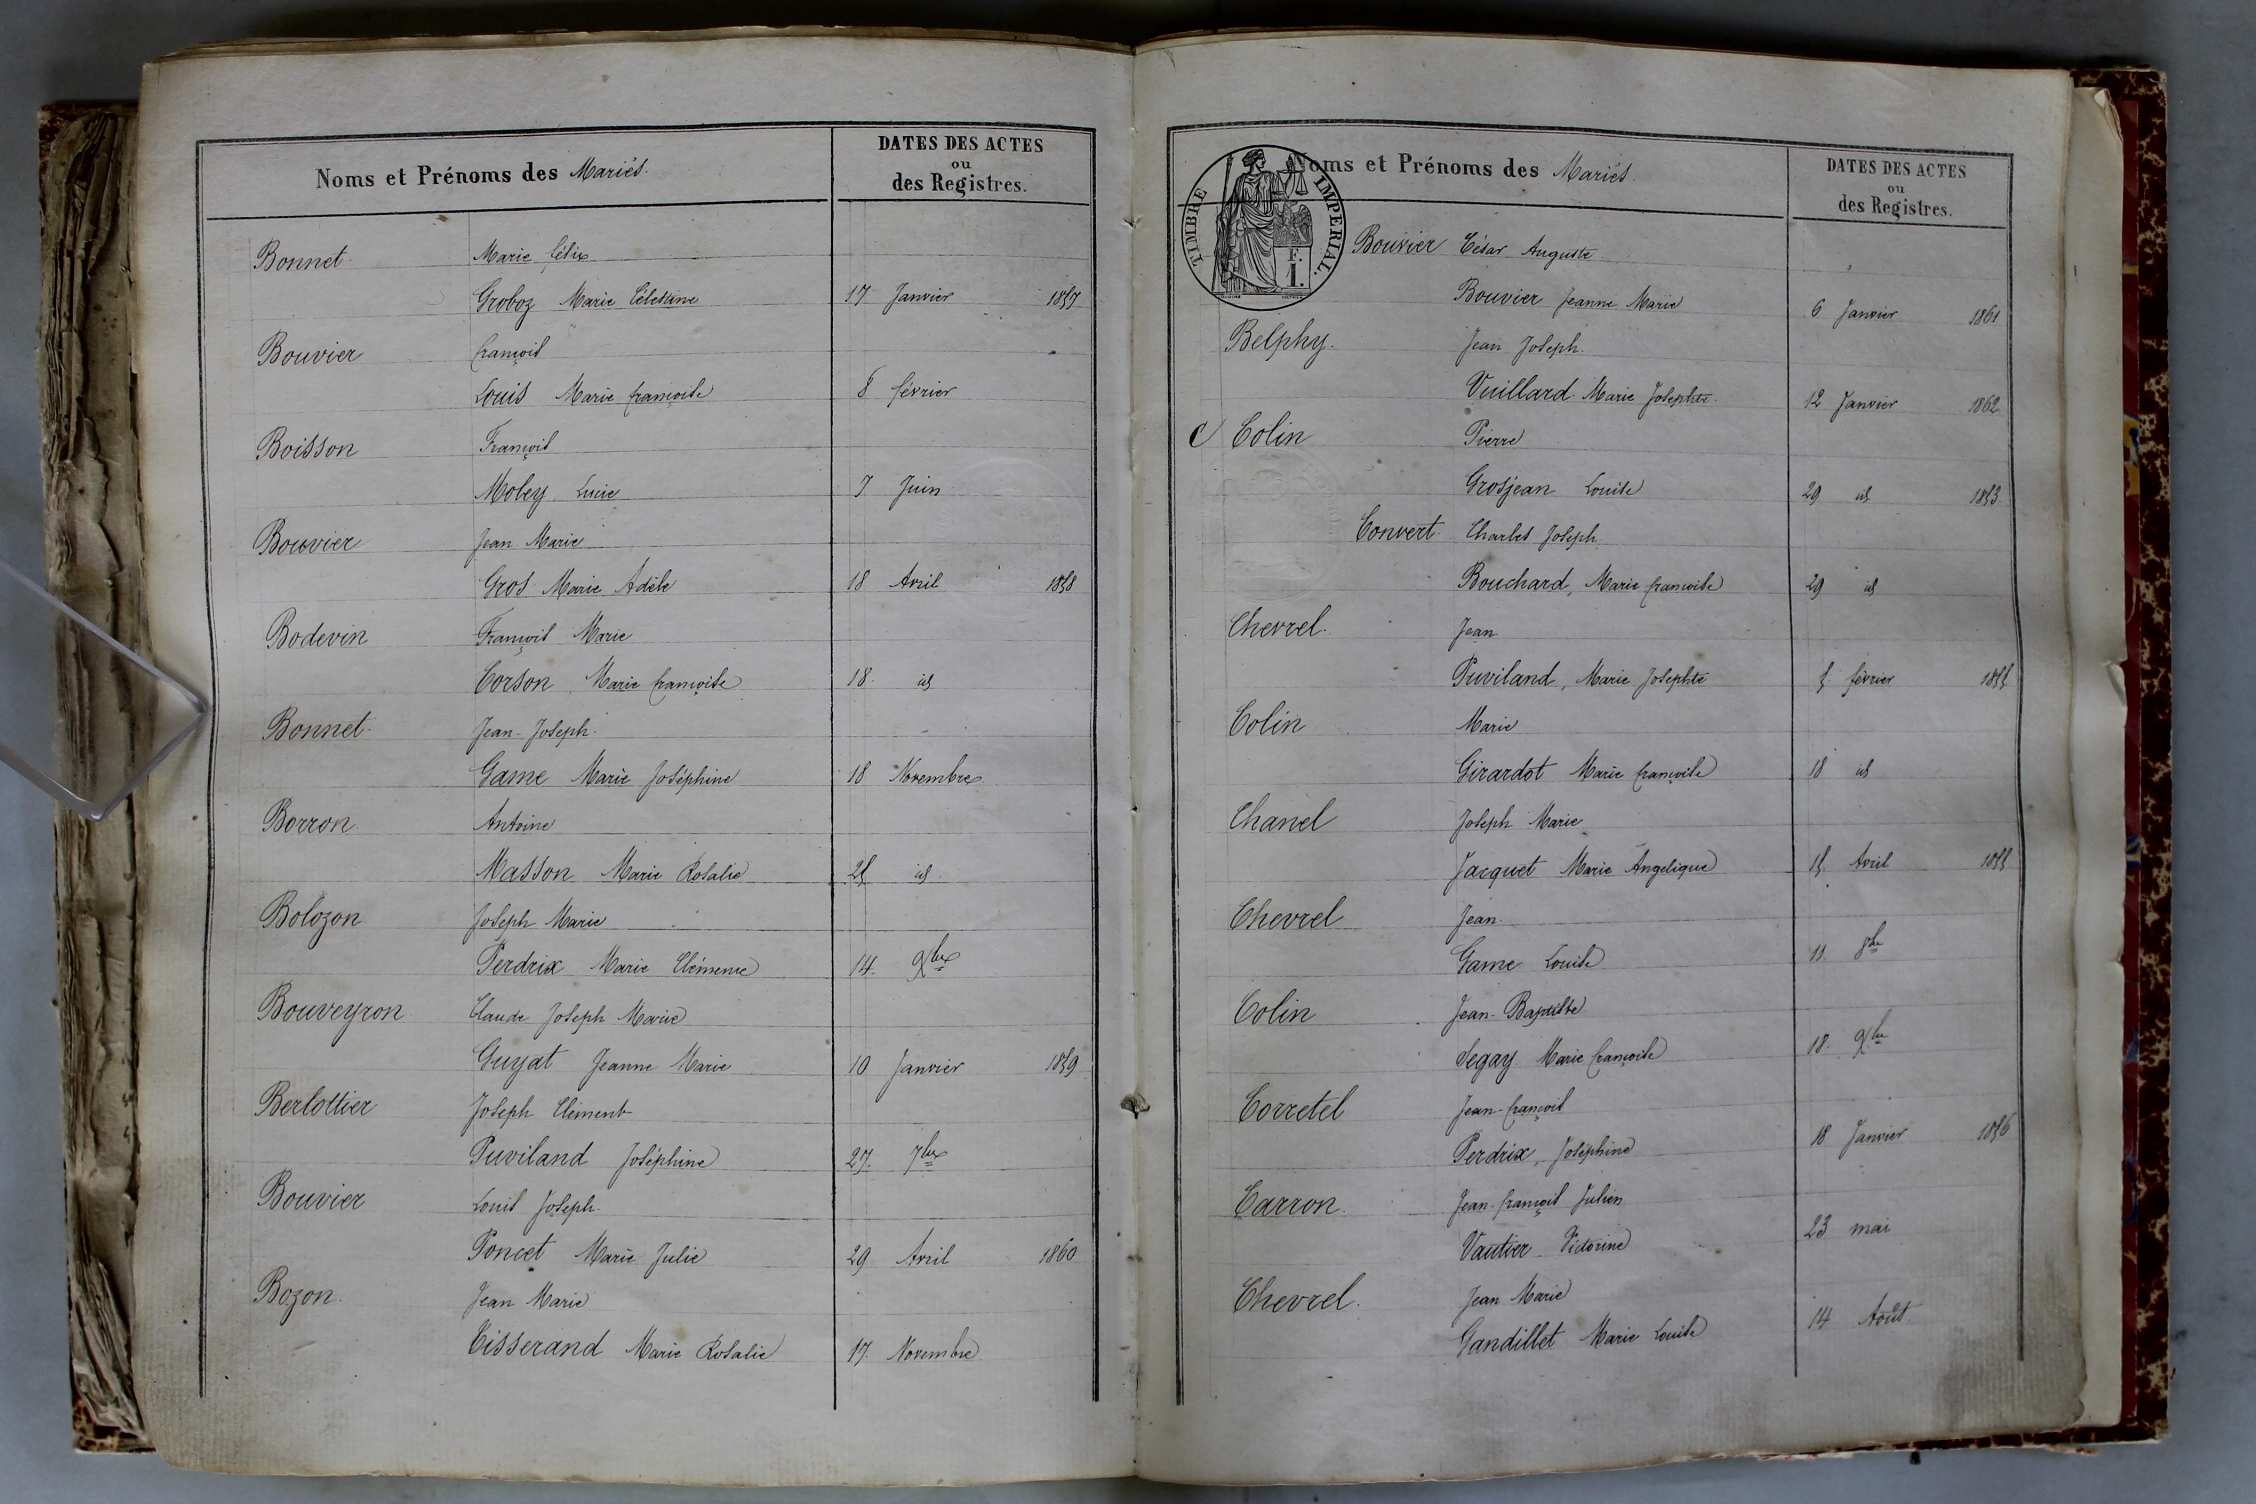 Noms et Prénoms des Mariés.
DATES DES ACTES
ou
des Registres.
Bonnet Marie Félix
Groboz Marie Célestine 17 Janvier 1857
Bouvier françois
Louis Marie françoise 8 février
Boisson François
Moley Lucie 7 Juin
Bouvier Jean Marie
Gros Marie Adèle 18 Avril 1858
Bodevin François Marie
Corson Marie françoise 18. id
Bonnet Jean-Joseph.
Game Marie Joséphine 18 Novembre
Borron Antoine
Masson Marie Rosalie 25 id
Bolozon Joseph Marie
Perdrix Marie Clémence 14. 9bre
Bouveyron Claude Joseph Marie
Guyat Jeanne Marie 10 Janvier 1859
Berlottier Joseph Clément
Puviland Joséphine 27. 7bre
Bouvier Louis Joseph.
Poncet Marie Julie 29 Avril 1860
Bozon. Jean Marie
Tisserand Marie Rosalie 17. Novembre
TIMBRE IMPERIAL.
F.
1.
Noms et Prénoms des Mariés.
DATES DES ACTES
ou
des Registres.
Bouvier César Auguste
Bouvier Jeanne Marie 6 Janvier 1861
Belphy. Jean Joseph.
Vuillard Marie Josephte. 12 Janvier 1862
C Colin Pierre
Grosjean Louise 29 id 1853
Convert Charles Joseph
Bouchard, Marie françoise 29 id
Chevrel. Jean
Puviland, Marie Josephte 5 février 1855
Colin Marie
Girardot Marie françoise 18 id
Chanel Joseph Marie
Jacquet Marie Angelique 15. Avril 1855
Chevrel Jean
Game Louise 11. 8bre
Colin Jean-Baptiste
Segay Marie françoise 18. 9bre
Corretel Jean-françois
Perdrix, Joséphine 18 Janvier 1856
Carron. Jean-françois Julien
Vautier Victorine 23 mai
Chevrel. Jean Marie
Gandillet Marie Louise 14 Août.